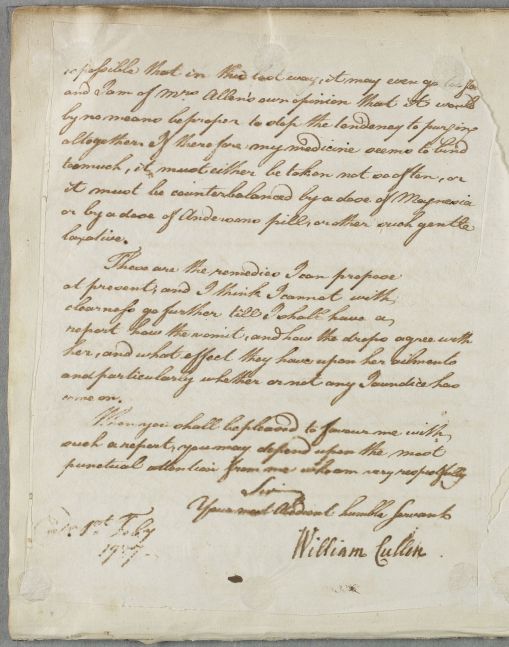 is possible that in this last way, it may even go too far
and I am of Mrs Allen's own opinion that it would
by no means be proper to stop the tendency to purging
altogether. If therefore my medicine seems to bind
too much, it must either be taken not so often, or
it must be counterbalanced by a dose of Magnesia
or by a dose of Andersons pills, or other such gentle
laxative.
These are the remedies I can propose
at present, and I think I cannot with
clearness go further till I shall have a
report how the vomit, and how the drops agree with
her, and what effect they have upon her ailments
and particularly whether or not any Jaundice has
come on.
When you shall be pleased to favour me with
such a report, you may depend upon the most
punctual attention from me who am very respectfully
Sir
Your most Obedient humble Servant
1st Feby
William Cullen.